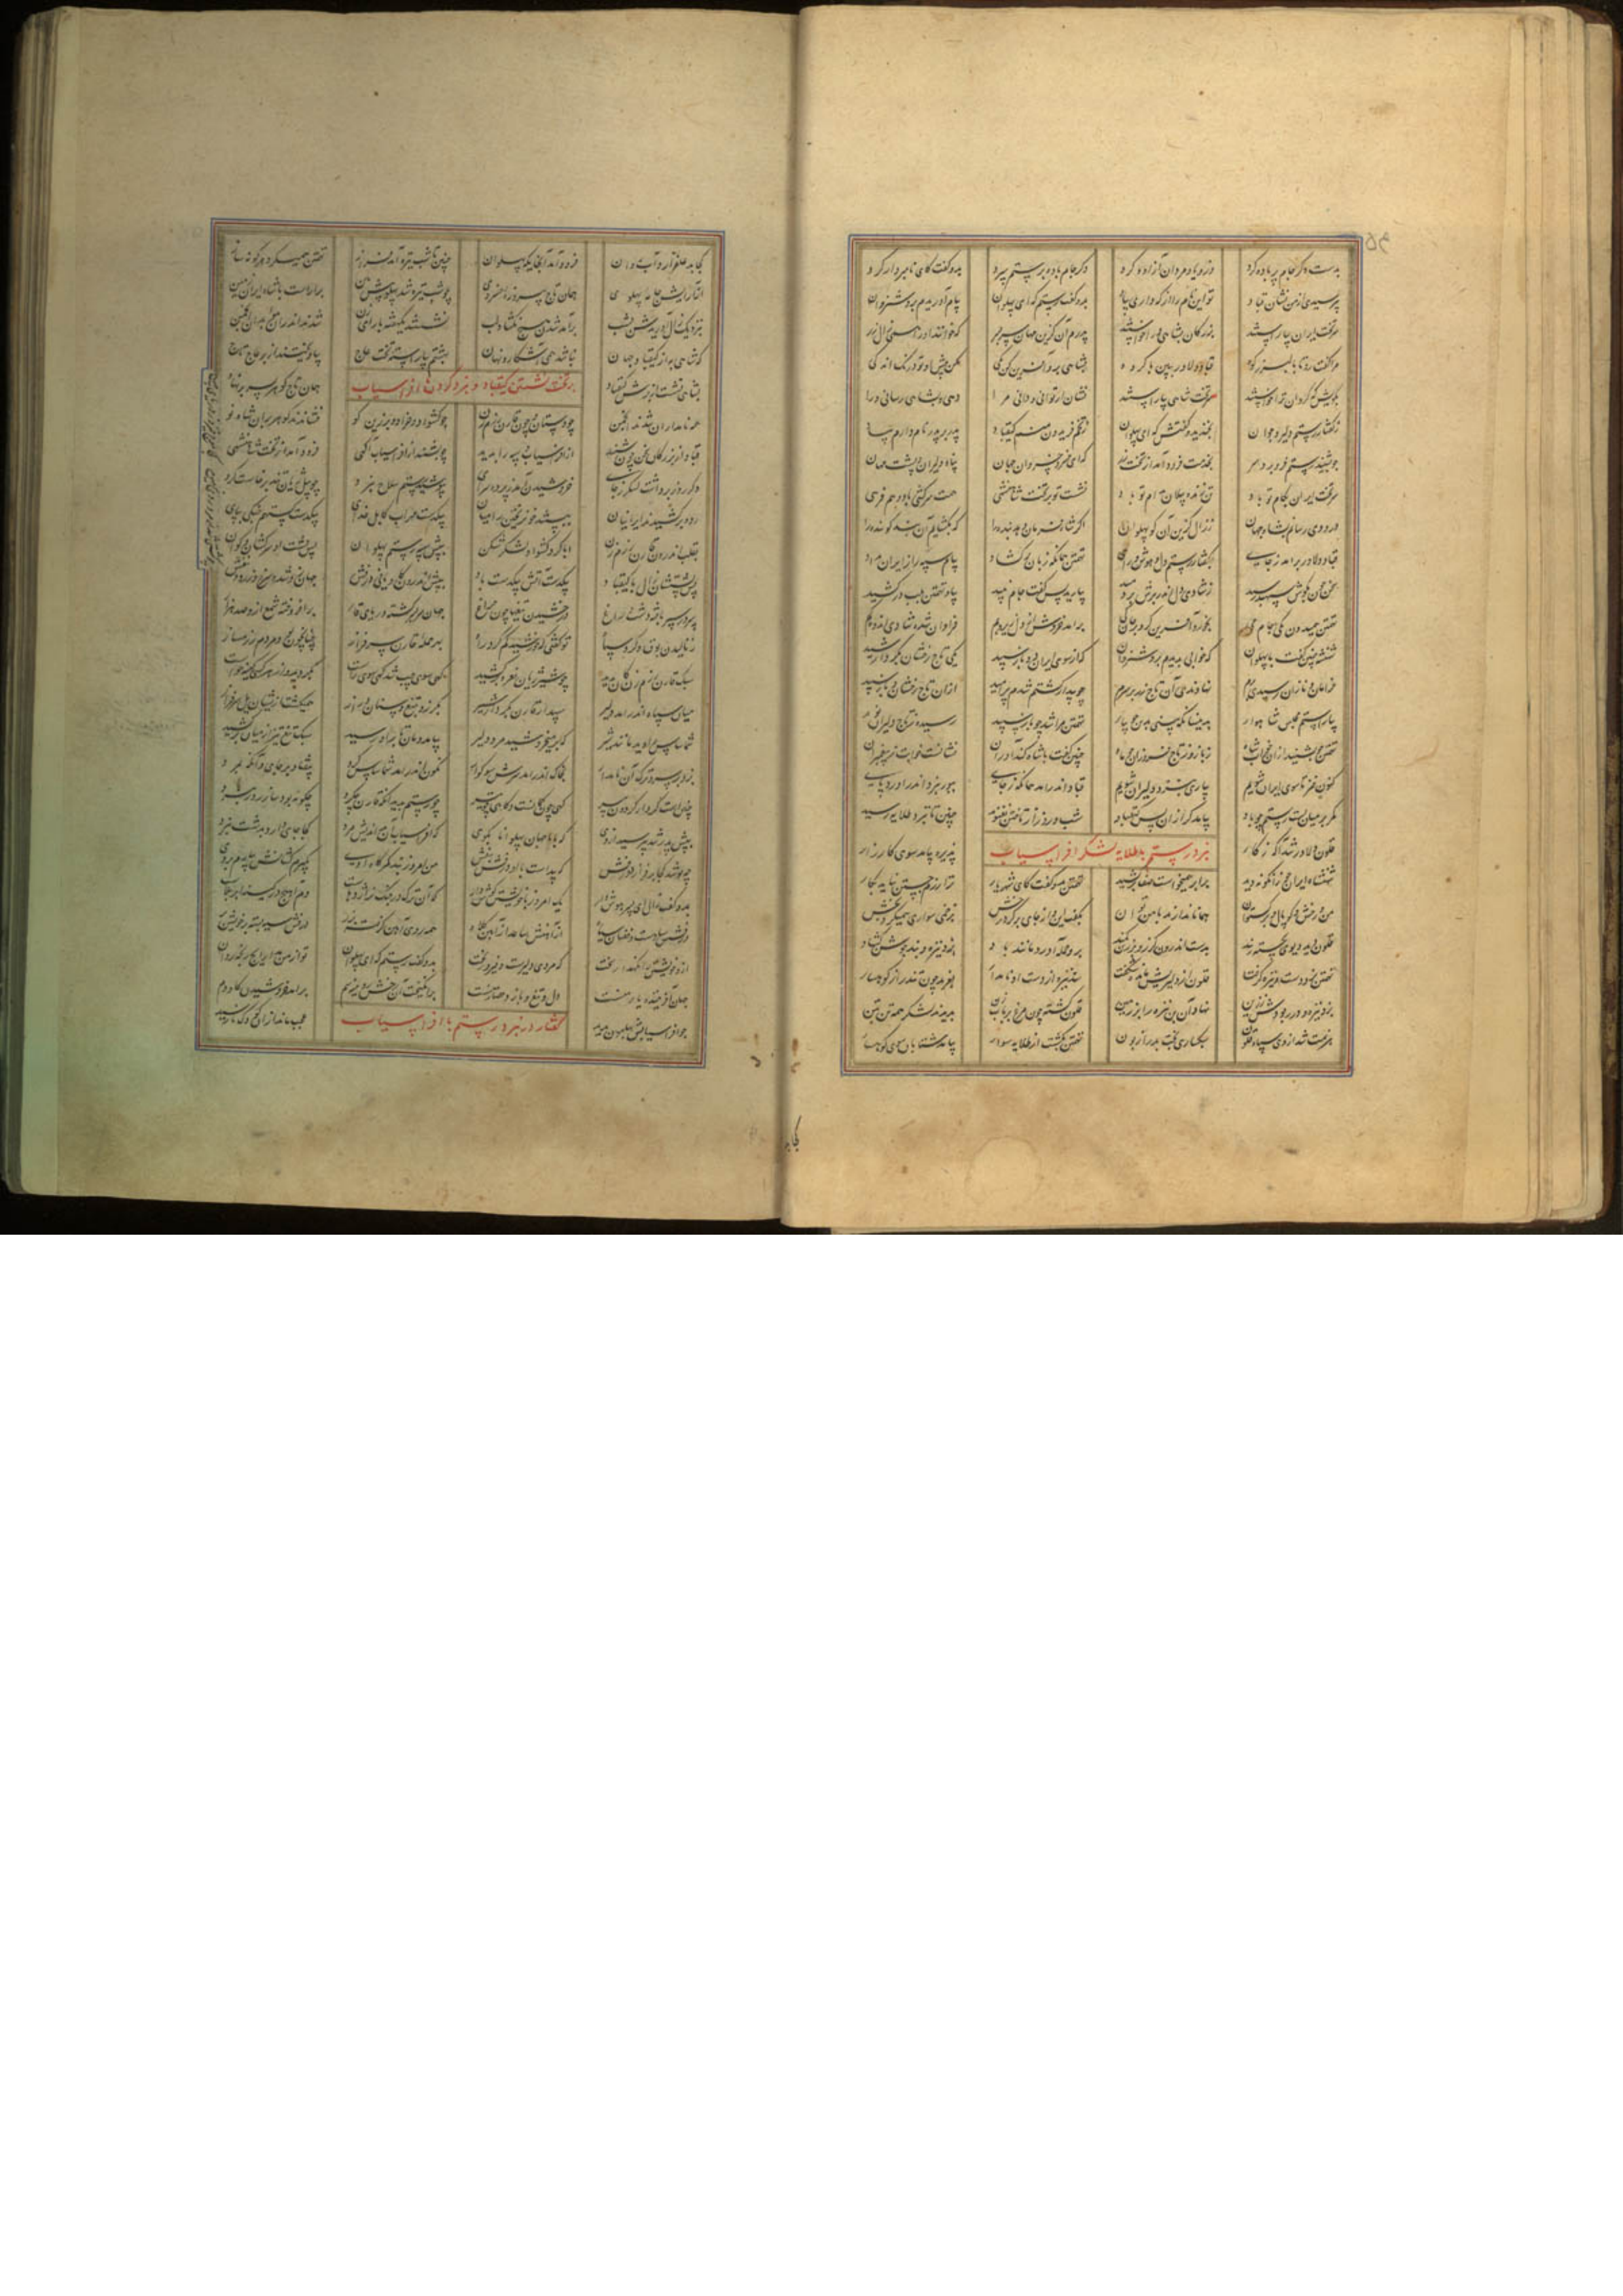 بدست دگر جام پر باده کرد وزو یاد مردان آزاده کرد دگر جام باده برستم سپرد بدو گفت کای نامبردار گرد
پرسیدی از من نشان قباد تو این نام را از که داری بیاد بدو گفت رستم که ای پهلوان پیام آوریدم بروشن روان
سر تخت ایران بیاراستند بزرگان بشاهی ورا خواستند پدرم آن گزین مهان سر بسر که خوانند او را همی زال زر
مرا گفت رو تا بالبرز کوه قباد دلاور ببین با گروه بشاهی برو آفرین کن یکی مکن پیش او در درنگ اندکی
بگویش که گردان ترا خواستند سر تخت شاهی بیاراستند نشان ار توانی و دانی مرا دهی و بشاهی رسانی ورا
ز گفتار رستم دلیر و جوان بخندید و گفتش که ای پهلوان ز تخم فریدون منم کیقباد پدر بر پدر نام دارم بیاد
چو بشنید رستم فرو برد سر بخدمت فرود آمد از تخت زر که ای خسرو خسروان جهان پناه دلیران و پشت مهان
سر تخت ایران بکام تو باد تن ژنده پیلان بدام تو باد نشست تو بر تخت شاهنشهی همت سرکشی باد و هم فرهی
درودی رسانم بشاه جهان ز زال گزین آن گو پهلوان اگر شاه فرمان دهد بنده را که بگشایم آن بند گوینده را
قباد دلاور برآمد ز جای بگفتار رستم دل و هوش و رای تهمتن همانگه زبان برگشاد پیام سپهدار ایران بداد
سخن چون بگوش سپهبد رسید ز شادی دل اندر برش بردمید بیارید پس گفت جام نبید بیاد تهمتن بلب درکشید
تهمتن همیدون یکی جام می بخورد آفرین کرد بر جان کی برآمد خروش از دل زیر و بم فراوان شده شادی اندوه کم
شهنشه چنین گفت با پهلوان که خوابی بدیدم بروشن روان که از سوی ایران دو باز سپید یکی تاج رخشان بکردار شید
خرامان و نازان رسیدی برم نهادندی آن تاج زر بر سرم چو بیدار گشتم شدم پرامید ازان تاج رخشان و باز سپید
بیاراستم مجلس شاهوار بدینسان که بینی بدین جویبار تهمتن مرا شد چو باز سپید رسیدم ز تاج دلیران نوید
تهمتن چو بشنید ازان خواب شاه ز باز و ز تاج فروزان چو ماه چنین گفت با شاه کنداوران نشانست خوابت ز پیغمبران
کنون خیز تا سوی ایران شویم بیاری بنزد دلیران شویم قباد اندر آمد همانگه ز جای ببور نبرد اندر آورد پای
کمر بر میان بست رستم چو باد بیامد گرازان پس کیقباد شب و روز از تاختن نغنوید چنین تا بنزد طلایه رسید
قلون دلاور شد آگه ز کار پذیره بیامد سوی کارزار
نبرد رستم با طلایه لشکر افراسیاب
شهنشاه ایران چو زان گونه دید برابر همی خواست صف برکشید تهمتن بدو گفت کای شهریار ترا رزم جستن نیاید بکار
من و رخش و کوپال و برگستوان همانا ندارند با من توان بگفت این و از جای برکرد رخش بزخمی سواری همیکرد پخش
قلون دید دیوی بجسته ز بند بدست اندرون گرز و بر زین کمند برو حمله آورد مانند باد بزد نیزه و بند جوشن گشاد
تهمتن بزد دست و نیزه گرفت قلون از دلیریش مانده شگفت ستد نیزه از دست او نامدار بغرید چون تندر از کوهسار
بزد نیزه و در ربودش ز زین نهاد آن بن نیزه را بر زمین قلون گشته چون مرغ بر بابزن بدیدند لشکر همه تن بتن
هزیمت شد از وی سپاه قلون بیکبارگی بخت بد را زبون تهمتن بگشت از طلایه سوار بیامد شتابان سوی کوهسار
کجا
کجا بد علفزار و آب روان فرود آمد آنجایگه پهلوان چنین تا شب تیره آمد فراز تهمتن همیکرد هر گونه ساز
از آرایش جامه پهلوی همان تاج و خسروی چو شب تیره شد پهلو پیش بین برآراست با شاه ایران زمین
بنزدیک زال آوریدش بشب برآمد شدن هیچ نگشاد لب نشستند یکهفته با رای زن شدند اندران موبدان انجمن
که شاهی به از کیقباد جهان نباشد همی آشکار و نهان بهشتم بیاراسته تخت عاج بیاویختند از بر عاج تاج
بشاهی نشست از برش کیقباد همان تاج گوهر بسر برنهاد
بر تخت نشستن کیقباد و نبرد کردن با افراسیاب
همه نامداران شدند انجمن چو دستان و چون قارن رزم زن چو کشواد و خراد و برزین گو فشاندند گوهر بران شاه نو
قباد از بزرگان سخن چون شنید از افراسیاب و سپه را بدید چو بشنید از افراسیاب آگهی فرود آمد از تخت شاهنشهی
دگر روز برداشت لشکر ز جای خروشیدن آمد ز پرده سرای بپوشید رستم سلاح نبرد چو پیل ژیان شد برخاست گرد
رده برکشیدند ایرانیان ببستند خون ریختن را میان بیکدست مهراب کابل خدای بیکدست گستهم جنگی بپای
بقلب اندرون قارن رزم زن ابا گرد کشواد لشکر شکن بپیش سپه رستم پهلوان پس پشت او سرکشان و گوان
پس پشتشان زال با کیقباد بیکدست آتش بیکدست باد بپیش اندرون کاویانی درفش جهان زو شده سرخ و زرد و بنفش
سپر در سپر بافته دشت و راغ درخشیدن تیغها چون چراغ جهان سربسر گشته دریای قار برافروخته شمع ازو صد هزار
ز نالیدن بوق تو گفتی که خورشید گم کرد راه بهر حمله قارن سرفراز
سبک قارن رزم زن کان بدید چو شیر ژیان نعره برکشید گهی سوی چپ شد گهی سوی راست بگردید و از هر کسی کینه خواست
میان سپاه اندر آمد دلیر سپهدار قارن بکردار شیر بگرز و بتیغ و سنان دراز همی کشت ازیشان یل سرفراز
شماساس را دید مانند شیر که میخروشید مرد دلیر بیامد دمان تا بر او رسید سبک تیغ تیز از میان برکشید
بزد بر سر و ترگ آن نامدار بخاک اندر آمد سرش نگون اندر آمد شماساس گرد بیفتاد بر جای و آنگه بمرد
چنین است کردار گردون پیر گهی چون کمانست و گاهی چو تیر چو رستم بدید آنکه قارن چه کرد چگونه بود ساز رزم و نبرد
بپیش پدر شد بپرسید ازوی که با من جهان پهلوانا بگوی که افراسیاب آن بداندیش مرد کجا جای دارد بدشت نبرد
چه پوشد کجا برفرازد درفش که پیداست تابان درفش بنفش من امروز بند کمرگاه اوی بگیرم کشانش بیارم بروی
بدو گفت زال ای پسر هوش دار یک امروز با خویشتن گوش دار که آن ترک در جنگ نر اژدهاست دم آهنج و در کینه ابر بلاست
درفشش سیاهست و خفتان سیاه از آهنش ساعد از آهن کلاه همه روی آهن گرفته بزر درفش سیه بسته بر خود بر
ازو خویشتن را نگهدار سخت که مردی دلیرست و پیروز بخت بدو گفت رستم که ای پهلوان تو از من مدار ایچ رنجه روان
جهان آفریننده یار منست دل و تیغ و بازو حصار منست برانگیخت آن رخش رویینه سم برآمد خروشیدن گاودم
گفتار در نبرد رستم با افراسیاب
چو افراسیابش بهامون بدید عجب ماند ازان کودک نارسید